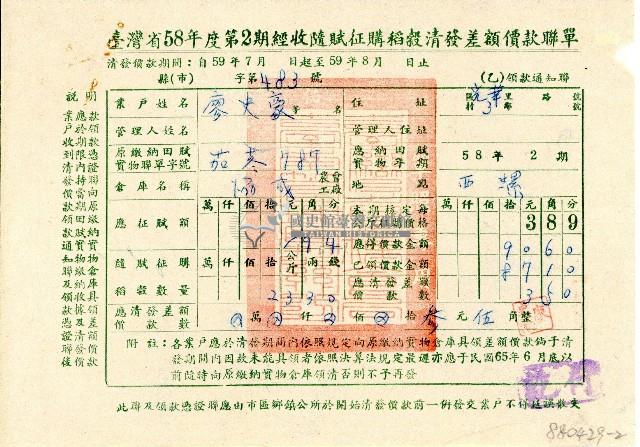 臺灣省58年度第2期經收隨賦征購稻穀清發差額價款聯單
清發價款期間：自59年7月 日起至59年8月 日止
縣(市) 字第483號 (乙)領款通知聯
業戶姓名 廖大豪 等名 住址 里 鄰 路 號
管理人姓名 管理人住址
原繳納田賦實物聯單字號 787 應納田賦實物年期 58年2期
倉庫名稱 農會 工廠 地點 西螺
萬仟佰拾元角分 本期核定每公斤採購價格 萬仟佰拾元角分 389
應征賦額 應得價款金額 9060
隨賦征購稻穀數量 萬仟佰拾公斤兩錢 2330 已領價款金額 8710
應清發差額數 350
應清發差額價款數 萬 仟 佰 拾 叁元伍角整
附註：各業戶應於清發期間內依照規定向原繳納實物倉庫具領差額價款倘于清
發期間內因故未能具領者依照決算法規定最遲亦應于民國65年6月底以
前隨時向原繳納實物倉庫領清否則不予再發
說明
業戶收到清發價款通知聯及領款憑證聯後
應於期限內持向原繳納實物倉庫具領差額價款
此聯及領款憑證聯應由市區鄉鎮公所於開始清發價款前一併發交業戶不得延誤散失
國史館臺灣文獻館
TAIWAN HISTORICA
880429-2